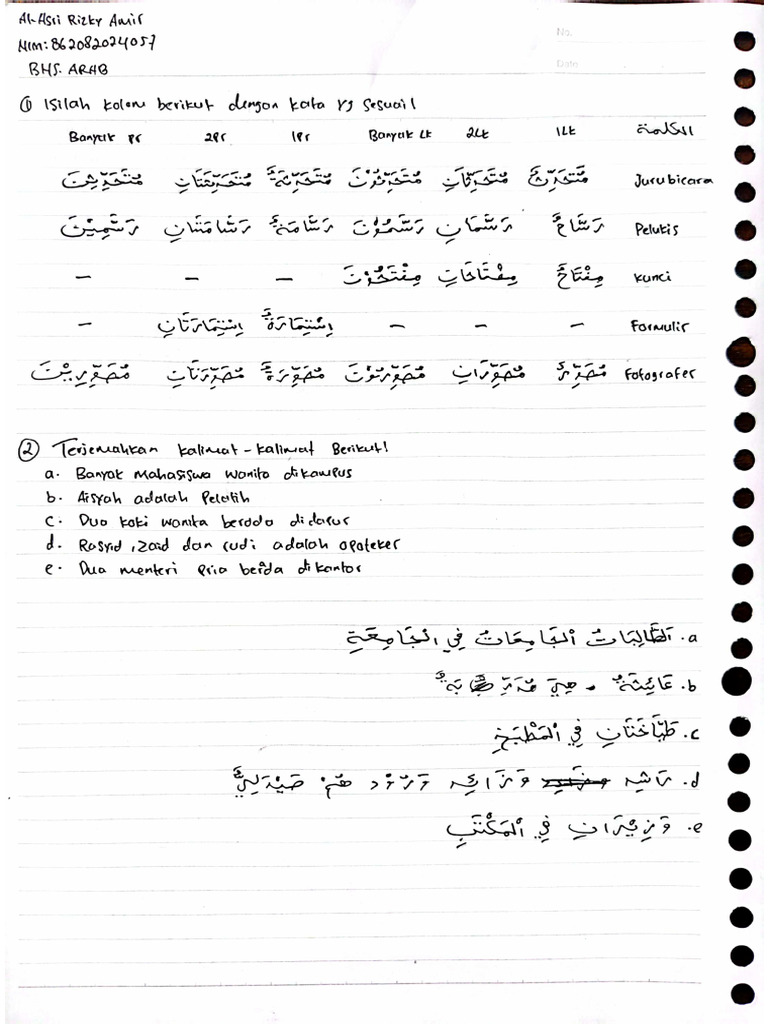 Al-Asri Rizky Amir
NIM: 862082024057
BHS. ARAB
No.
Date
① Isilah kolom berikut dengan kata yg sesuai!
Banyak pr 2pr 1pr Banyak Lk 2Lk 1Lk الكلمة
مُتَحَدِّثِيْنَ مُتَحَدِّثَتَانِ مُتَحَدِّثَةٌ مُتَحَدِّثُوْنَ مُتَحَدِّثَانِ مُتَحَدِّثٌ Juru bicara
رَسَّمِيْنَ رَسَّامَتَانِ رَسَّامَةٌ رَسَّمُوْنَ رَسَّمَانِ رَسَّامٌ Pelukis
— — — مِفْتَحُوْنَ مِفْتَاحَانِ مِفْتَاحٌ kunci
— اِسْتِمَارَتَانِ اِسْتِمَارَةٌ — — — Formulir
مُصَوِّرِيْنَ مُصَوِّرَتَانِ مُصَوِّرَةٌ مُصَوِّرُوْنَ مُصَوِّرَانِ مُصَوِّرٌ Fotografer
② Terjemahkan kalimat-kalimat Berikut!
a. Banyak Mahasiswa wanita dikampus
b. Aisyah adalah Pelatih
c. Dua koki wanita berada didapur
d. Rasyid, Zaid dan rudi adalah apoteker
e. Dua menteri pria berada dikantor
a. الطَّالِبَاتُ الْجَامِعَاتُ فِي الْجَامِعَةِ
b. عَائِشَةُ هِيَ
c. طَبَّاخَتَانِ فِي الْمَطْبَخِ
d. هُمْ صَيْدَلِيٌّ
e. وَزِيْرَانِ فِي الْمَكْتَبِ